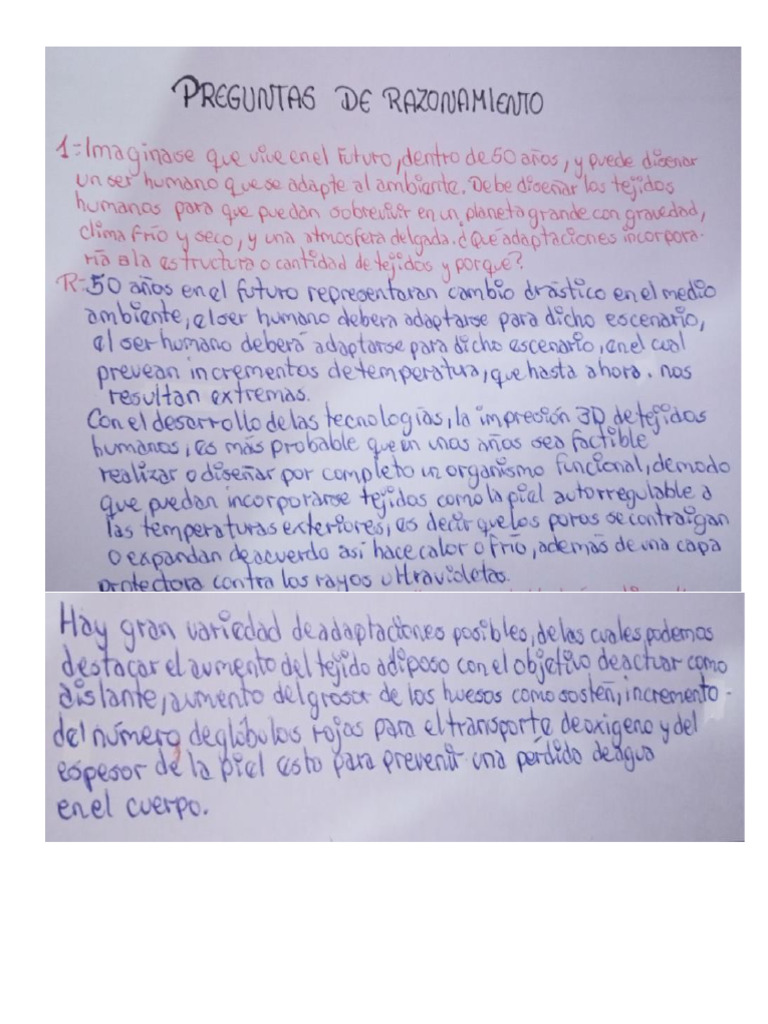 PREGUNTAS DE RAZONAMIENTO
1=Imaginase que vive en el futuro, dentro de 50 años, y puede disenar
un ser humano que se adapte al ambiente. Debe diseñar los tejidos
humanos para que puedan sobrevivir en un planeta grande con gravedad,
clima frío y seco, y una atmosfera delgada. ¿Qué adaptaciones incorpora-
ría a la estructura o cantidad de tejidos y porque?
R=50 años en el futuro representaran cambio drástico en el medio
ambiente, el ser humano debera adaptarse para dicho escenario,
el ser humano deberá adaptarse para dicho escenario, en el cual
prevean incrementos de temperatura, que hasta ahora. nos
resultan extremas.
Con el desarrollo de las tecnologías, la impresión 3D de tejidos
humanos, es más probable que en unos años sea factible
realizar o diseñar por completo un organismo funcional, de modo
que puedan incorporarse tejidos como la piel autorregulable a
las temperaturas exteriores, es decir que los poros se contraigan
o expandan de acuerdo así hace calor o frío, además de una capa
protectora contra los rayos ultravioletas.
Hay gran variedad de adaptaciones posibles, de las cuales podemos
destacar el aumento del tejido adiposo con el objetivo de actuar como
aislante, aumento del grosor de los huesos como sosten, incremento -
del número de glóbulos rojas para el transporte de oxigeno y del
espesor de la piel esto para prevenir una pérdida de agua
en el cuerpo.